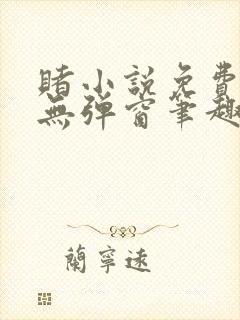 賭小説免費
無彈窗筆趣
蘭寧遠